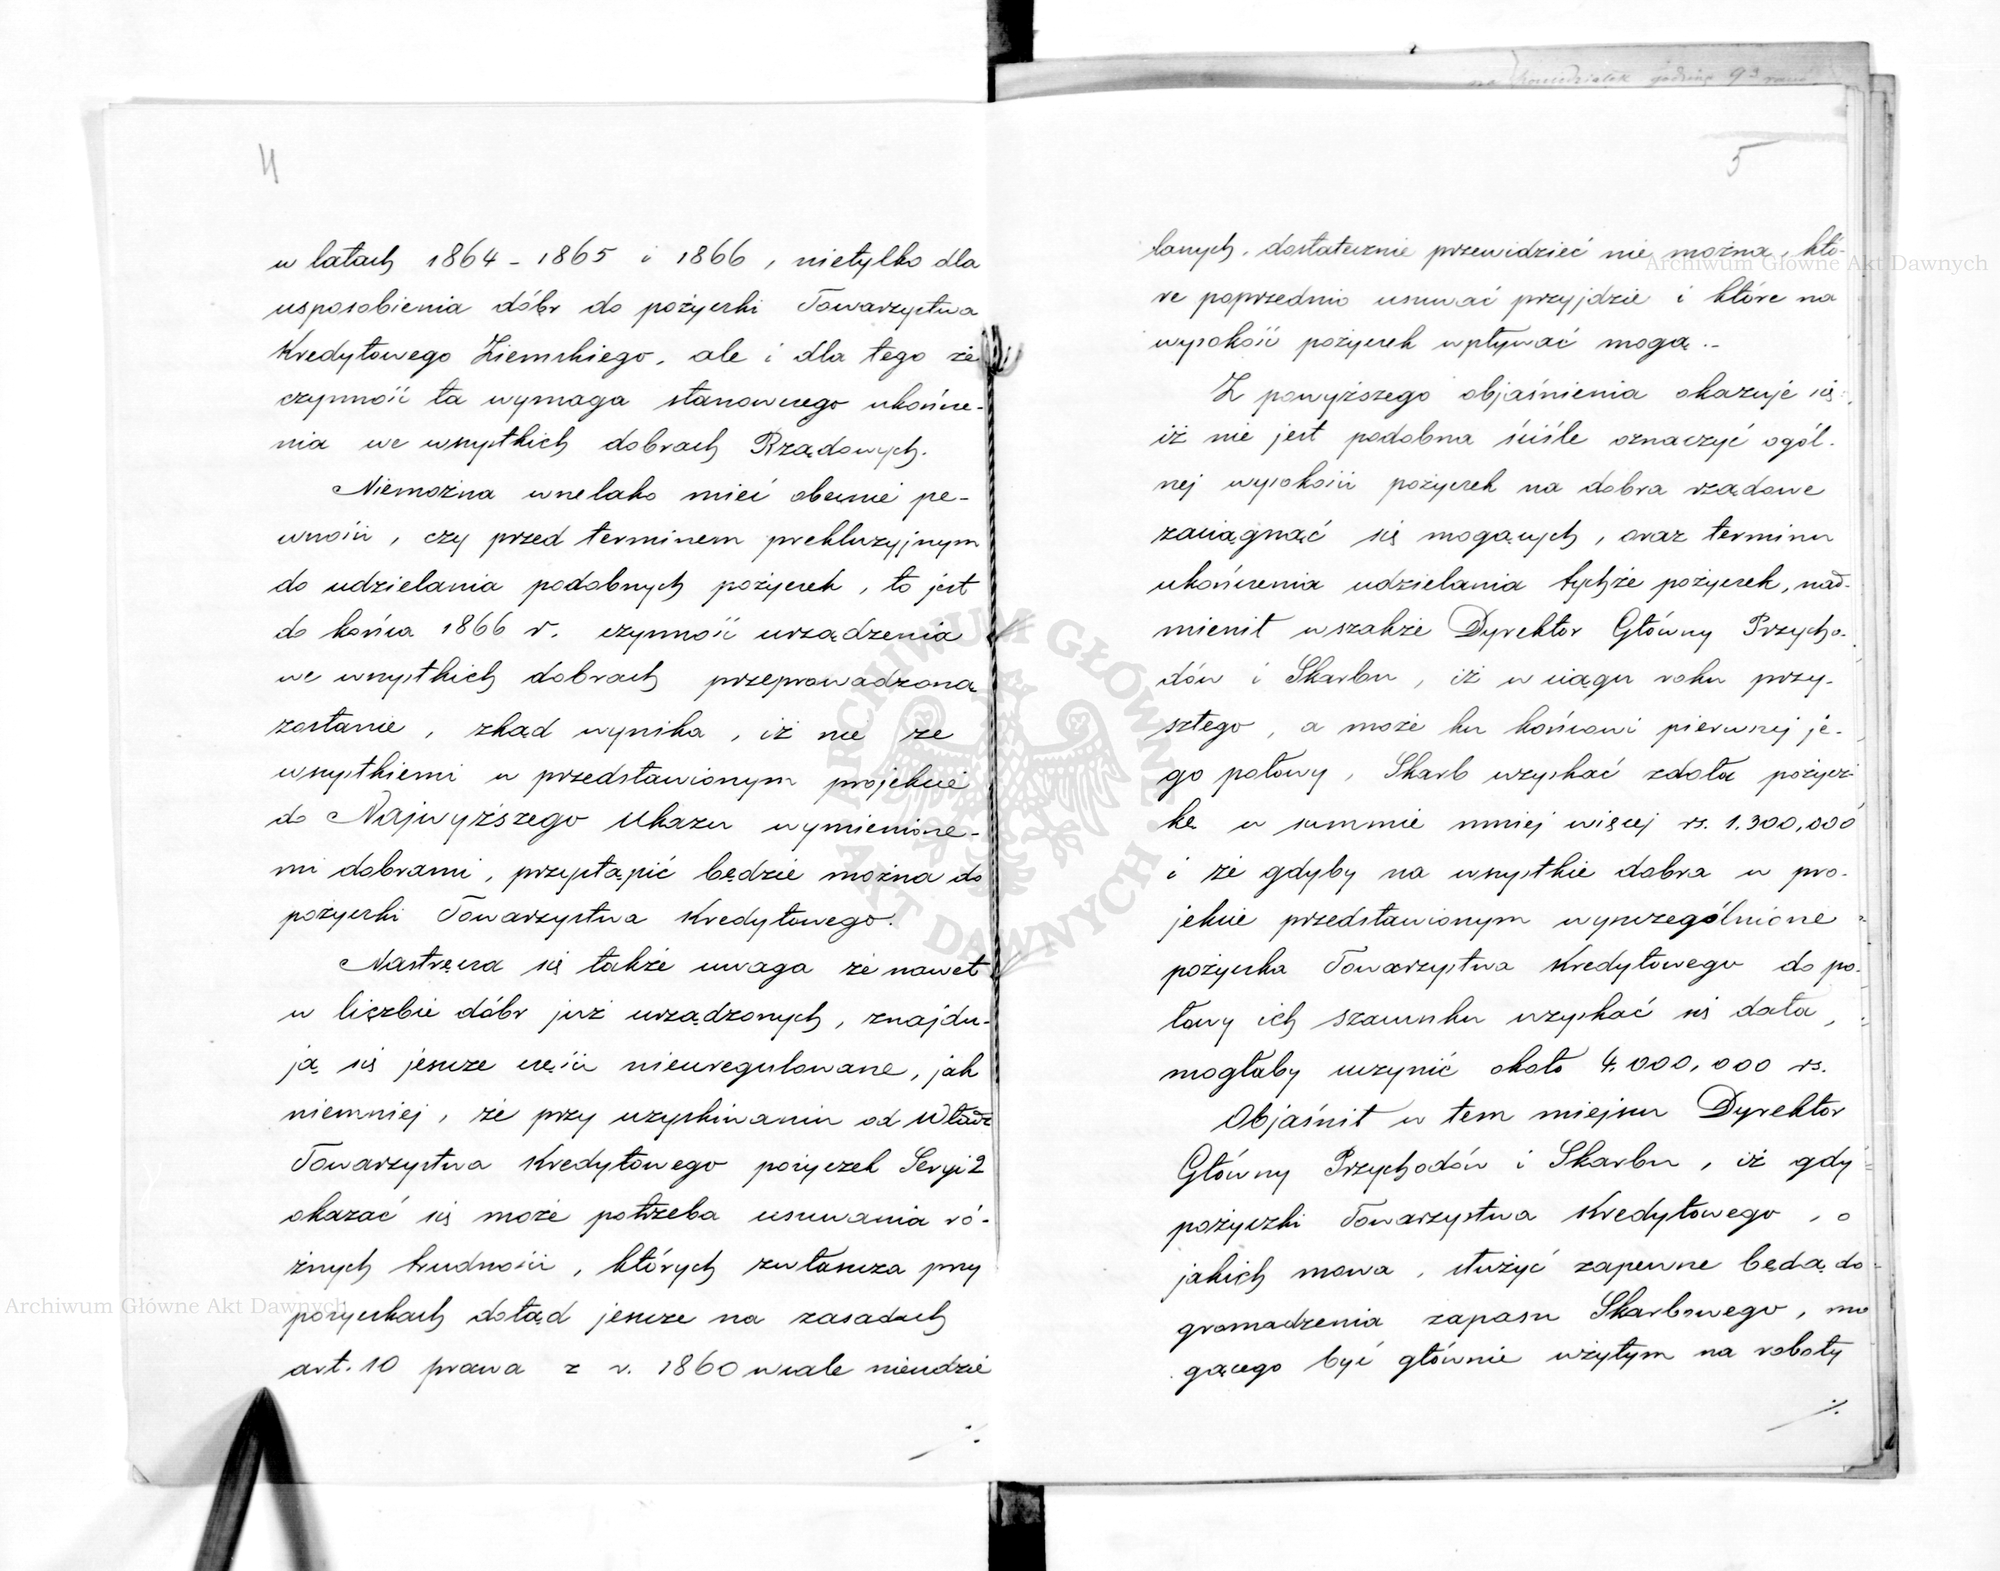 4
w latach 1864 - 1865 i 1866, nietylko dla
usposobienia dóbr do pożyczki Towarzystwa
Kredytowego Ziemskiego, ale i dla tego że
czynność ta wymaga stanowczego ukończe-
nia we wszystkich dobrach Rządowych.
Niemożna wszelako mieć obecnie pe-
wności, czy przed terminem prekluzyjnym
do udzielania podobnych pożyczek, to jest
do końca 1866 r. czynność urządzenia
we wszystkich dobrach przeprowadzoną
zostanie, zkąd wynika, iż nie ze
wszystkiemi w przedstawionym projekcie
do Najwyższego Ukazu wymienione-
mi dobrami, przystąpić będzie można do
pożyczki Towarzystwa Kredytowego.
Nastręcza się także uwaga że nawet
w liczbie dóbr już urządzonych, znajdu-
ją się jeszcze części nieuregulowane, jak
niemniej, że przy uzyskiwaniu od Władz
Towarzystwa Kredytowego pożyczek Seryi 2
okazać się może potrzeba usuwania ró-
żnych trudności, których zwłaszcza przy
pożyczkach dotąd jeszcze na zasadach
art. 10 prawa z r. 1860 wcale nieudzie
./.
5
lanych, dostatecznie przewidzieć nie można, któ-
re poprzednio usuwać przyjdzie i które na
wysokość pożyczek wpływać mogą.-
Z powyższego objaśnienia okazuje się
iż nie jest podobna ściśle oznaczyć ogól-
nej wysokości pożyczek na dobra rządowe
zaciągnąć się mogących, oraz terminu
ukończenia udzielania tychże pożyczek, nad-
mienił wszakże Dyrektor Główny Przycho-
dów i Skarbu, iż w ciągu roku przy-
szłego, a może ku końcowi pierwszej je-
go połowy, Skarb uzyskać zdoła pożycz-
kę w summie mniej więcej rs. 1.300,000
i że gdyby na wszystkie dobra w pro-
jekcie przedstawionym wyszczególnione
pożyczka Towarzystwa Kredytowego do po-
łowy ich szacunku uzyskać się dała,
mogłaby uczynić około 4,000,000 rs.
Objaśnił w tem miejscu Dyrektor
Główny Przychodów i Skarbu, iż gdy
pożyczki Towarzystwa Kredytowego, o
jakich mowa, służyć zapewne będą do
gromadzenia zapasu Skarbowego, mo
gącego być głównie użytym na roboty
./.
Archiwum Główne Akt Dawnych
Archiwum Główne Akt Dawnych
ARCHIWUM GŁÓWNE AKT DAWNYCH